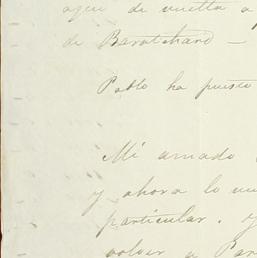 aqui de vuelta a
de Baratchard —
Pablo ha puesto
Mi amado
y ahora lo
particular. y
volver a Par